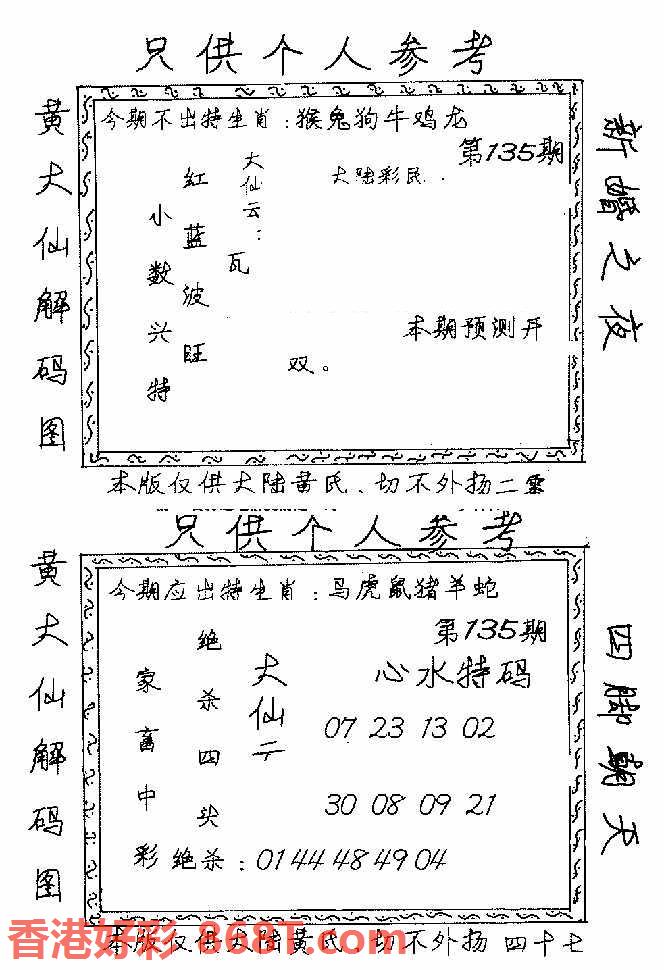 只供个人参考
黄大仙解码图
今期不出特生肖：猴兔狗牛鸡龙
第135期
大陆彩民．
大仙云：
瓦
红蓝波旺
小数兴特
本期预测开
双。
新婚之夜
本版仅供大陆黄氏、切不外扬二
只供个人参考
黄大仙解码图
今期应出特生肖：马虎鼠猪羊蛇
第135期
心水特码
大仙云
绝杀四头
家畜中彩
07 23 13 02
30 08 09 21
绝杀：01 44 48 49 04
四脚朝天
本版仅供大陆黄氏、切不外扬 四十七
香港好彩.868T.com